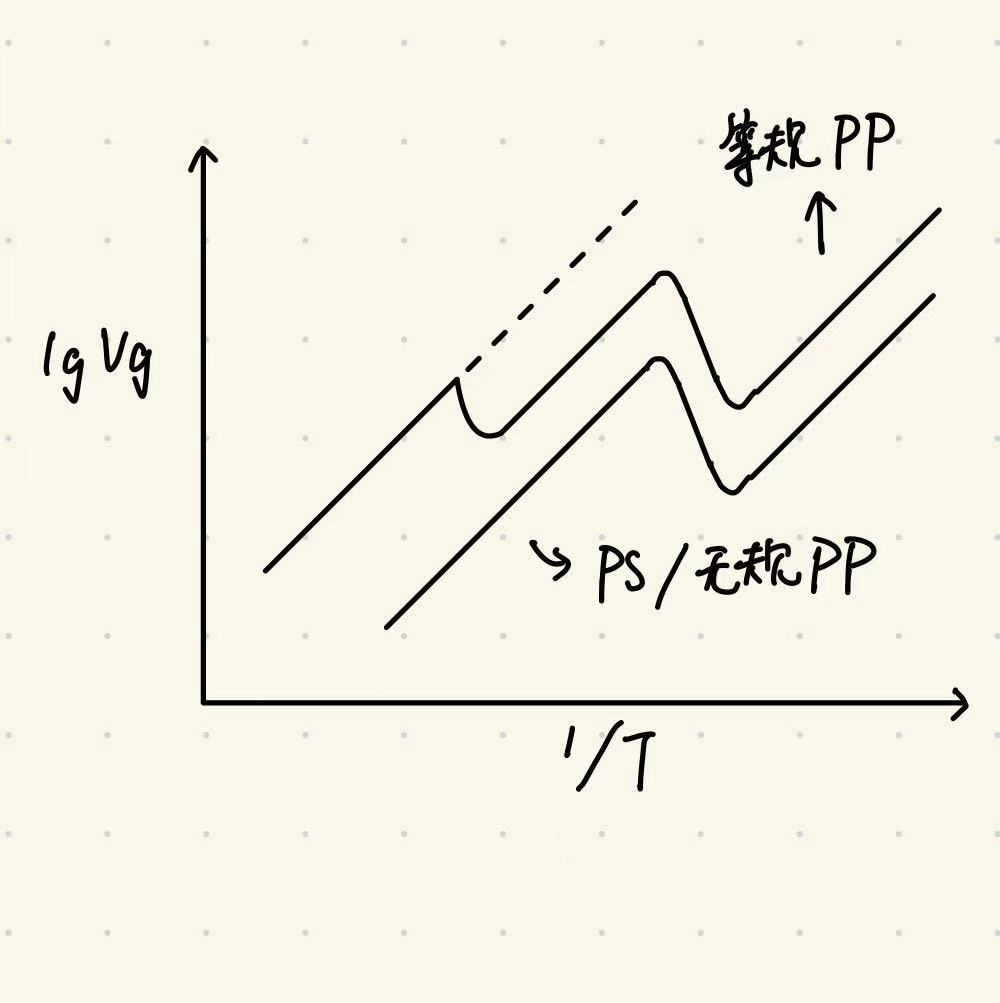 等规PP
lg Vg
PS/无规PP
1/T